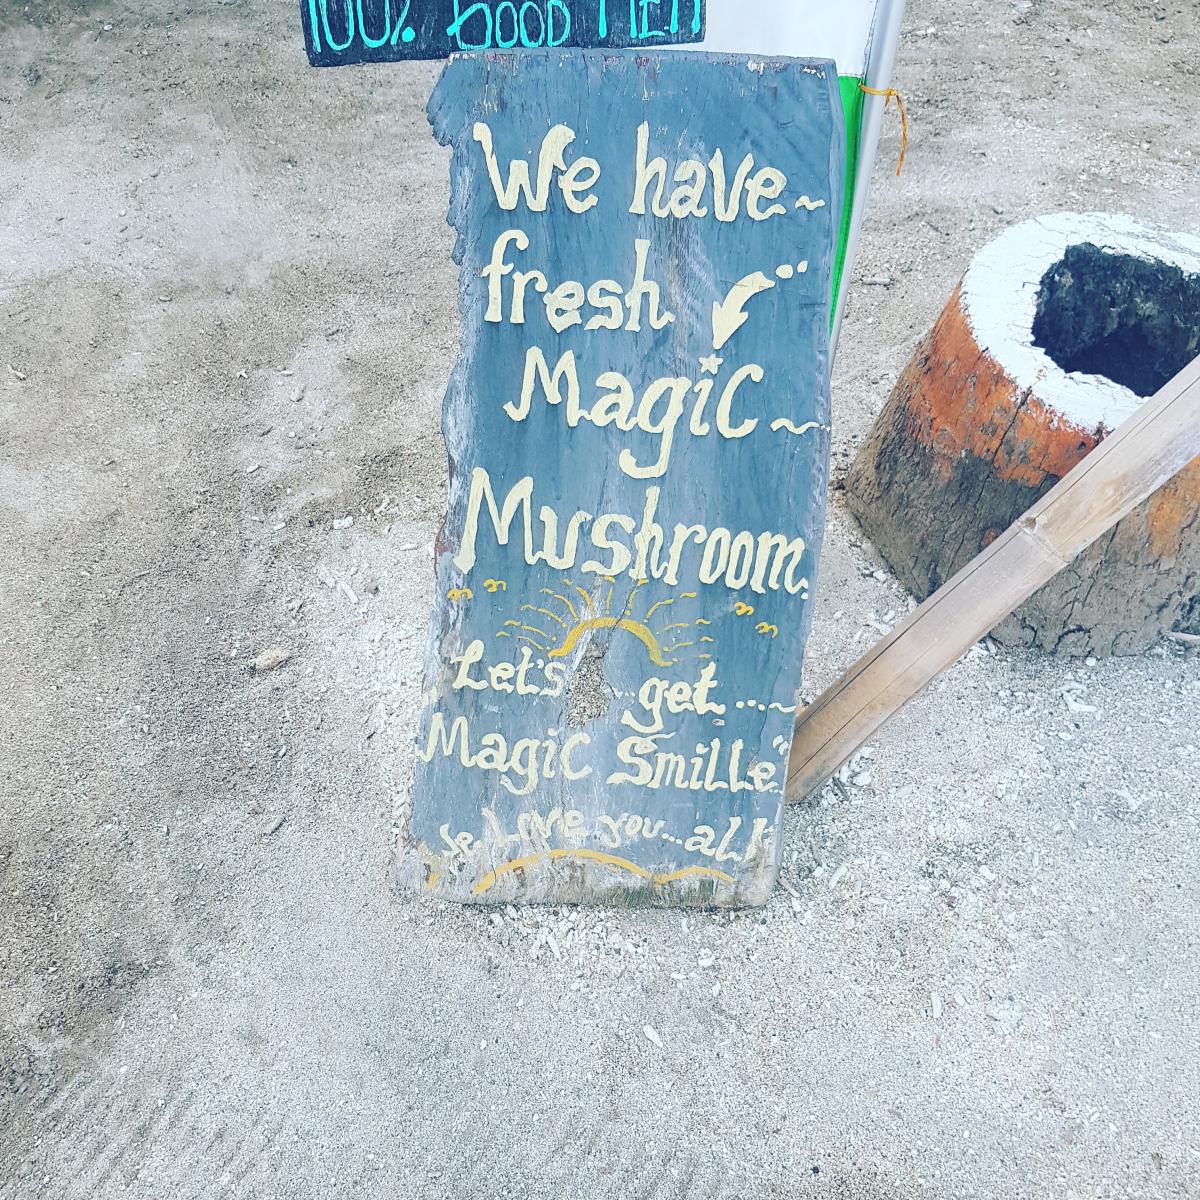 100% GOOD
We have~
fresh
Magic~
Mushroom.
"Let's get....~
Magic Smille"
Love you...all